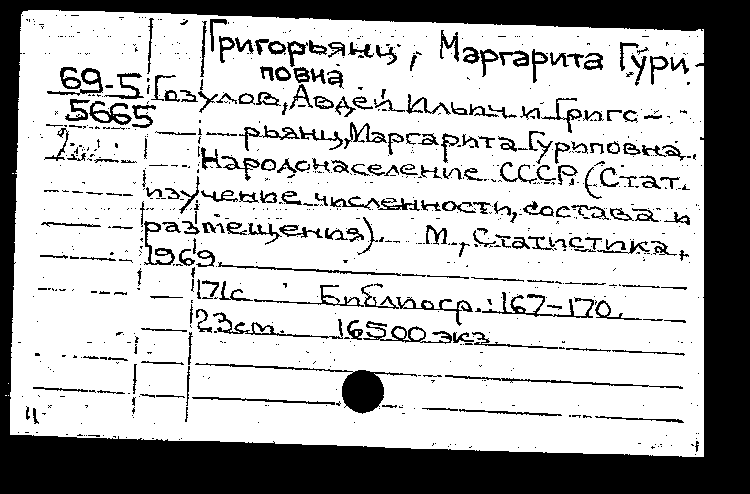 Григорьянц, Маргарита Гури-
повна
69-5
5665
Гозулов, Авдей Ильич и Григо-
рьянц, Маргарита Гуриповна.
Народонаселение СССР. (Стат.
изучение численности, состава и
размещения). М., Статистика,
1969.
171с. Библиогр.: 167-170.
23см. 16500 экз.